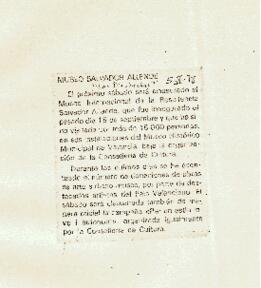 MUSEO SALVADOR ALLENDE
El próximo sábado será clausurado el
Museo Internacional de la Resistencia
Salvador Allende, que fue inaugurado el
pasado día 16 de septiembre y que ha si-
do visitado por más de 16.000 personas,
en sus instalaciones del Museo Histórico
Municipal de Valencia, bajo la organiza-
ción de la Conselleria de Cultura.
Durante los últimos días se ha acen-
tuado el número de donaciones de obras
de arte y diario museo, por parte de
destacados artistas del País Valenciano. El
sábado será clausurada también de ma-
nera oficial la campaña «Per un estatut
i autonomia» organizada igualmente
por la Conselleria de Cultura.